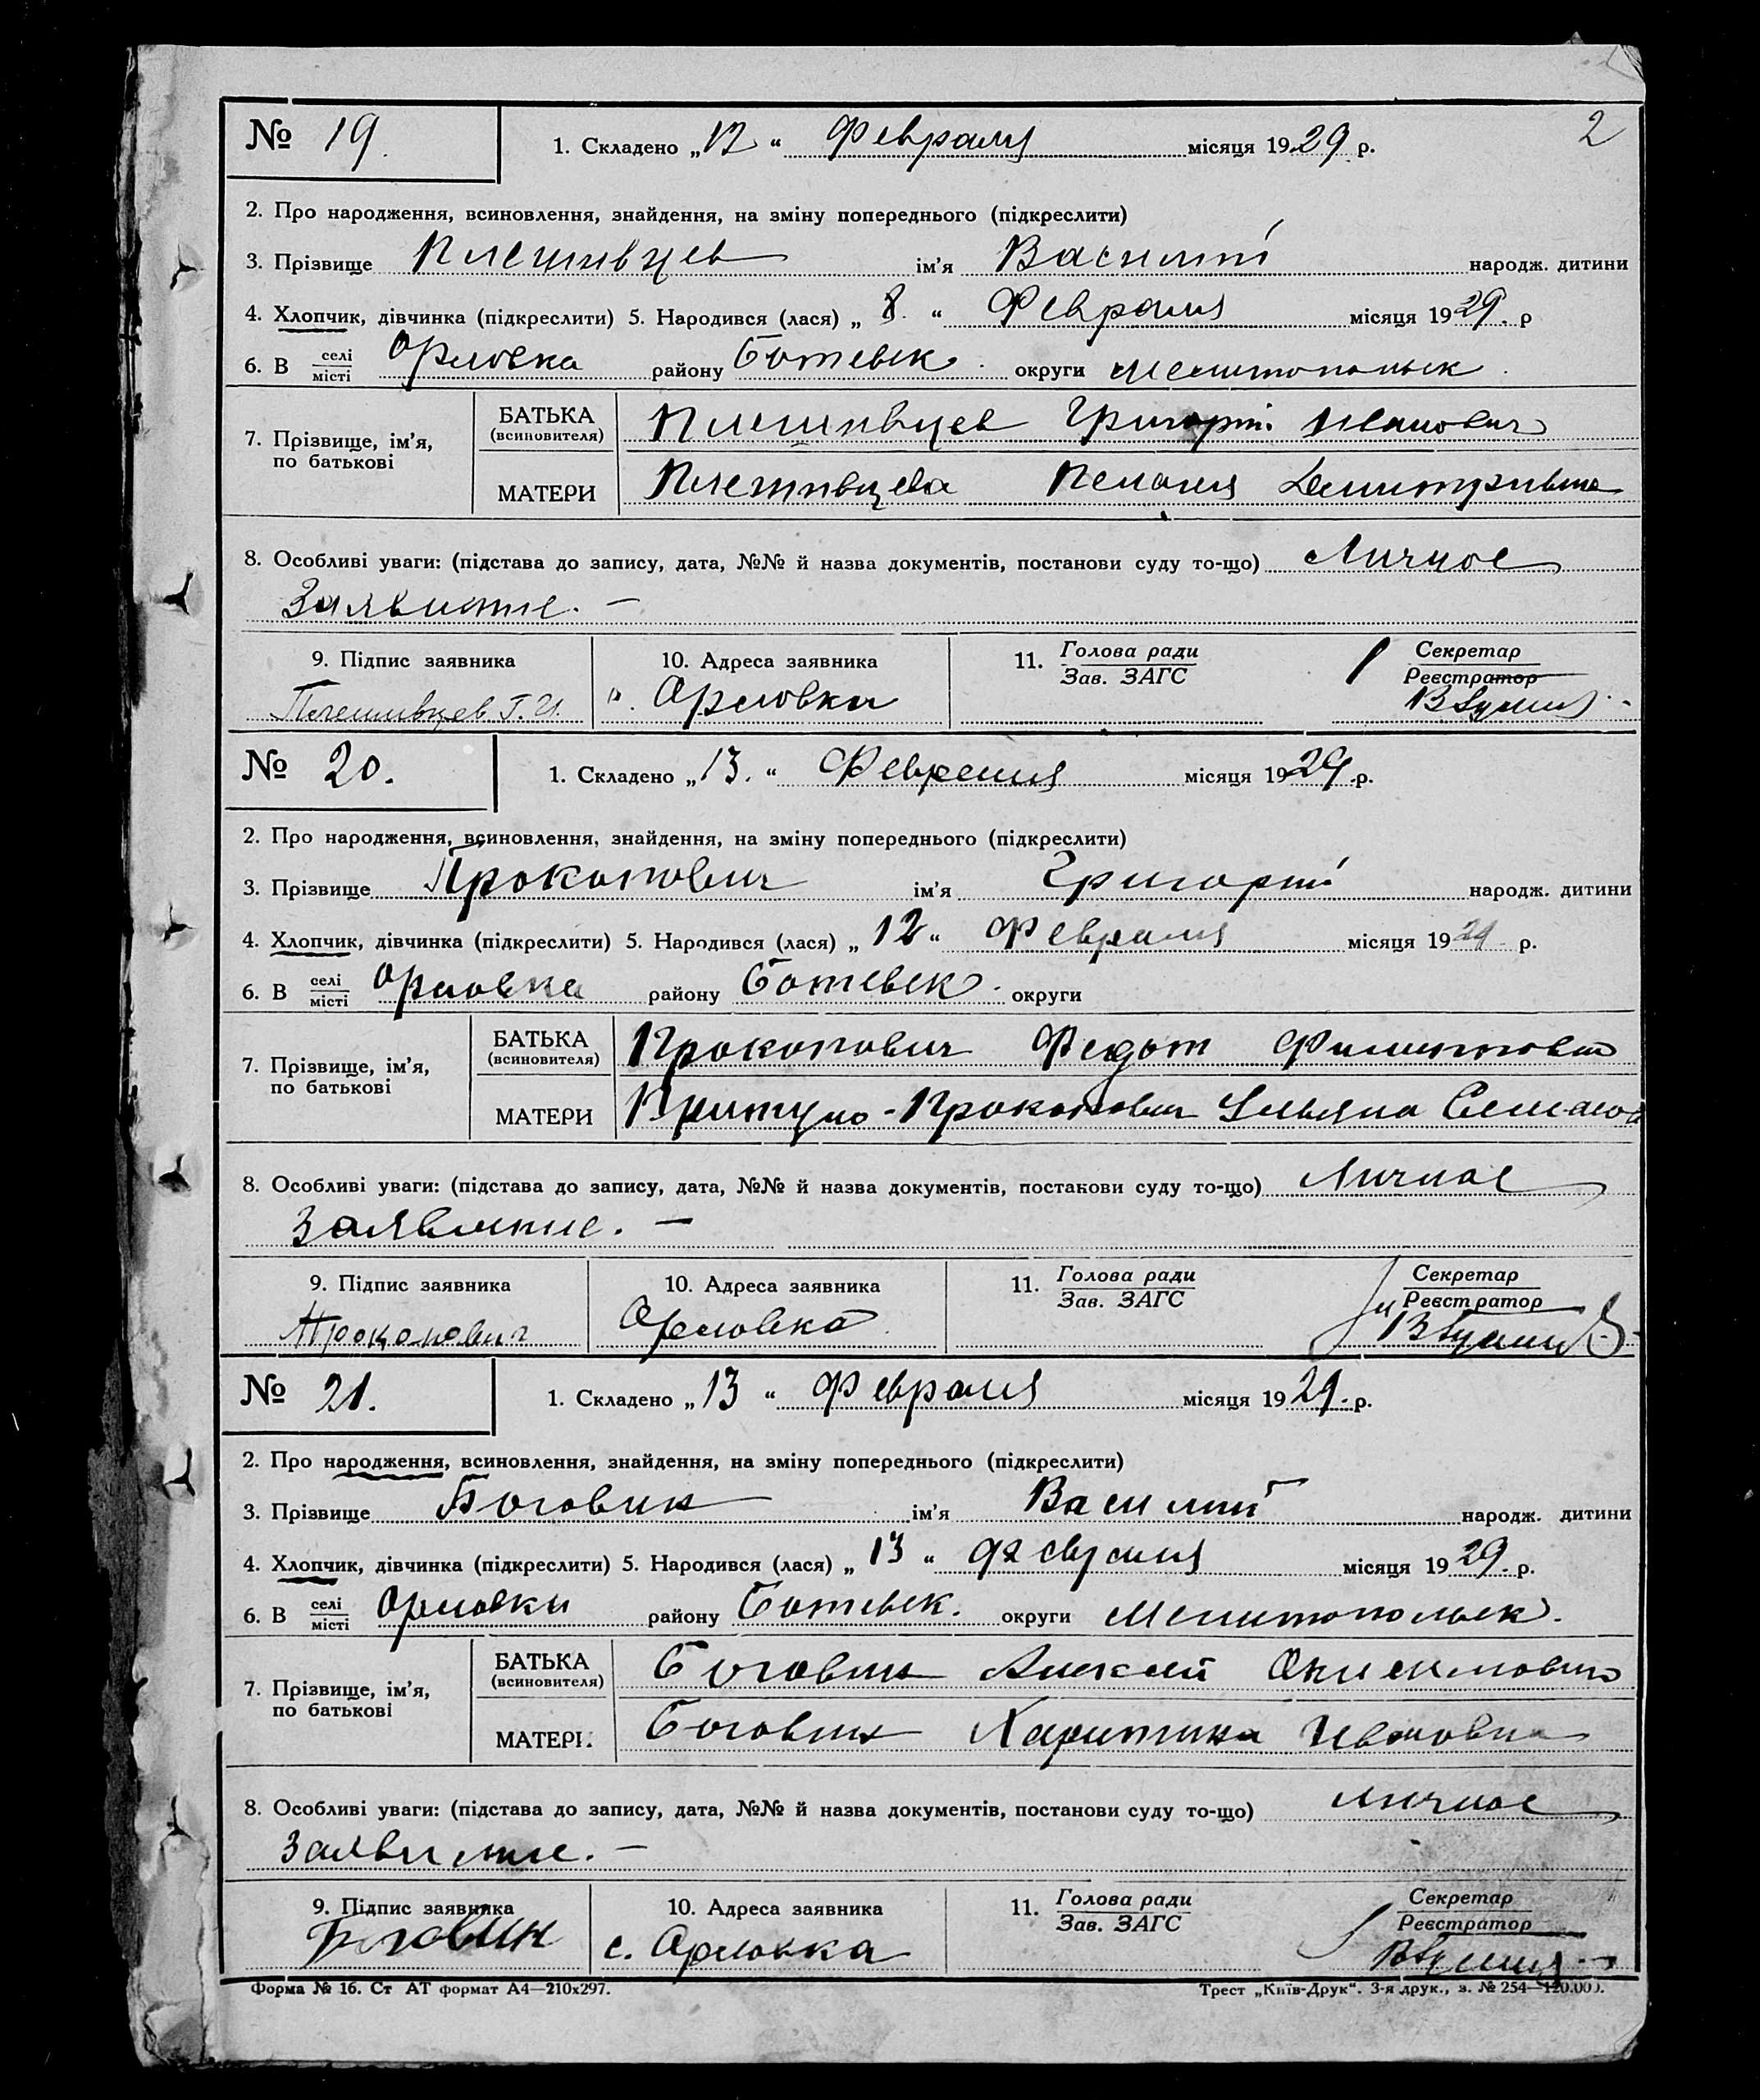 № 19. 1. Складено „12“ Февраля місяця 1929 р. 2
2. Про народження, всиновлення, знайдення, на зміну попереднього (підкреслити)
3. Прізвище Плешивцев ім'я Василий народж. дитини
4. Хлопчик, дівчинка (підкреслити) 5. Народився (лася) „8.“ Февраля місяця 1929. р
6. В селі місті Орловка району Ботевск. округи Мелитопольск.
7. Прізвище, ім'я, по батькові БАТЬКА (всиновителя) Плешивцев Григорий Иванович
МАТЕРИ Плешивцева Пелагея
8. Особливі уваги: (підстава до запису, дата, №№ й назва документів, постанови суду то-що) Личное
Заявление. —
9. Підпис заявника 10. Адреса заявника 11. Голова ради Зав. ЗАГС Секретар Реєстратор
Плешивцев Г. И. Орловка
№ 20. 1. Складено „13.“ Февраля місяця 1929. р.
2. Про народження, всиновлення, знайдення, на зміну попереднього (підкреслити)
3. Прізвище Прокопович ім'я Григорий народж. дитини
4. Хлопчик, дівчинка (підкреслити) 5. Народився (лася) „12“ Февраля місяця 1929 р.
6. В селі місті Орловка району Ботевск. округи
7. Прізвище, ім'я, по батькові БАТЬКА (всиновителя) Прокопович Федот
МАТЕРИ Притуло-Прокопович Ульяна
8. Особливі уваги: (підстава до запису, дата, №№ й назва документів, постанови суду то-що) Личное
Заявление. —
9. Підпис заявника 10. Адреса заявника 11. Голова ради Зав. ЗАГС Секретар Реєстратор
Прокопович Орловка
№ 21. 1. Складено „13“ Февраля місяця 1929. р.
2. Про народження, всиновлення, знайдення, на зміну попереднього (підкреслити)
3. Прізвище Боговин ім'я Василий народж. дитини
4. Хлопчик, дівчинка (підкреслити) 5. Народився (лася) „13“ февраля місяця 1929. р.
6. В селі місті Орловки району Ботевск. округи Мелитопольск.
7. Прізвище, ім'я, по батькові БАТЬКА (всиновителя) Боговин Алексей Онисимович
МАТЕРІ. Боговин Харитина Ивановна
8. Особливі уваги: (підстава до запису, дата, №№ й назва документів, постанови суду то-що) Личное
Заявление. —
9. Підпис заявника 10. Адреса заявника 11. Голова ради Зав. ЗАГС Секретар Реєстратор
Боговин с. Орловка
Форма № 16. Ст АТ формат А4—210х297. Трест „Київ-Друк“. 3-я друк., з. № 254—120.000.